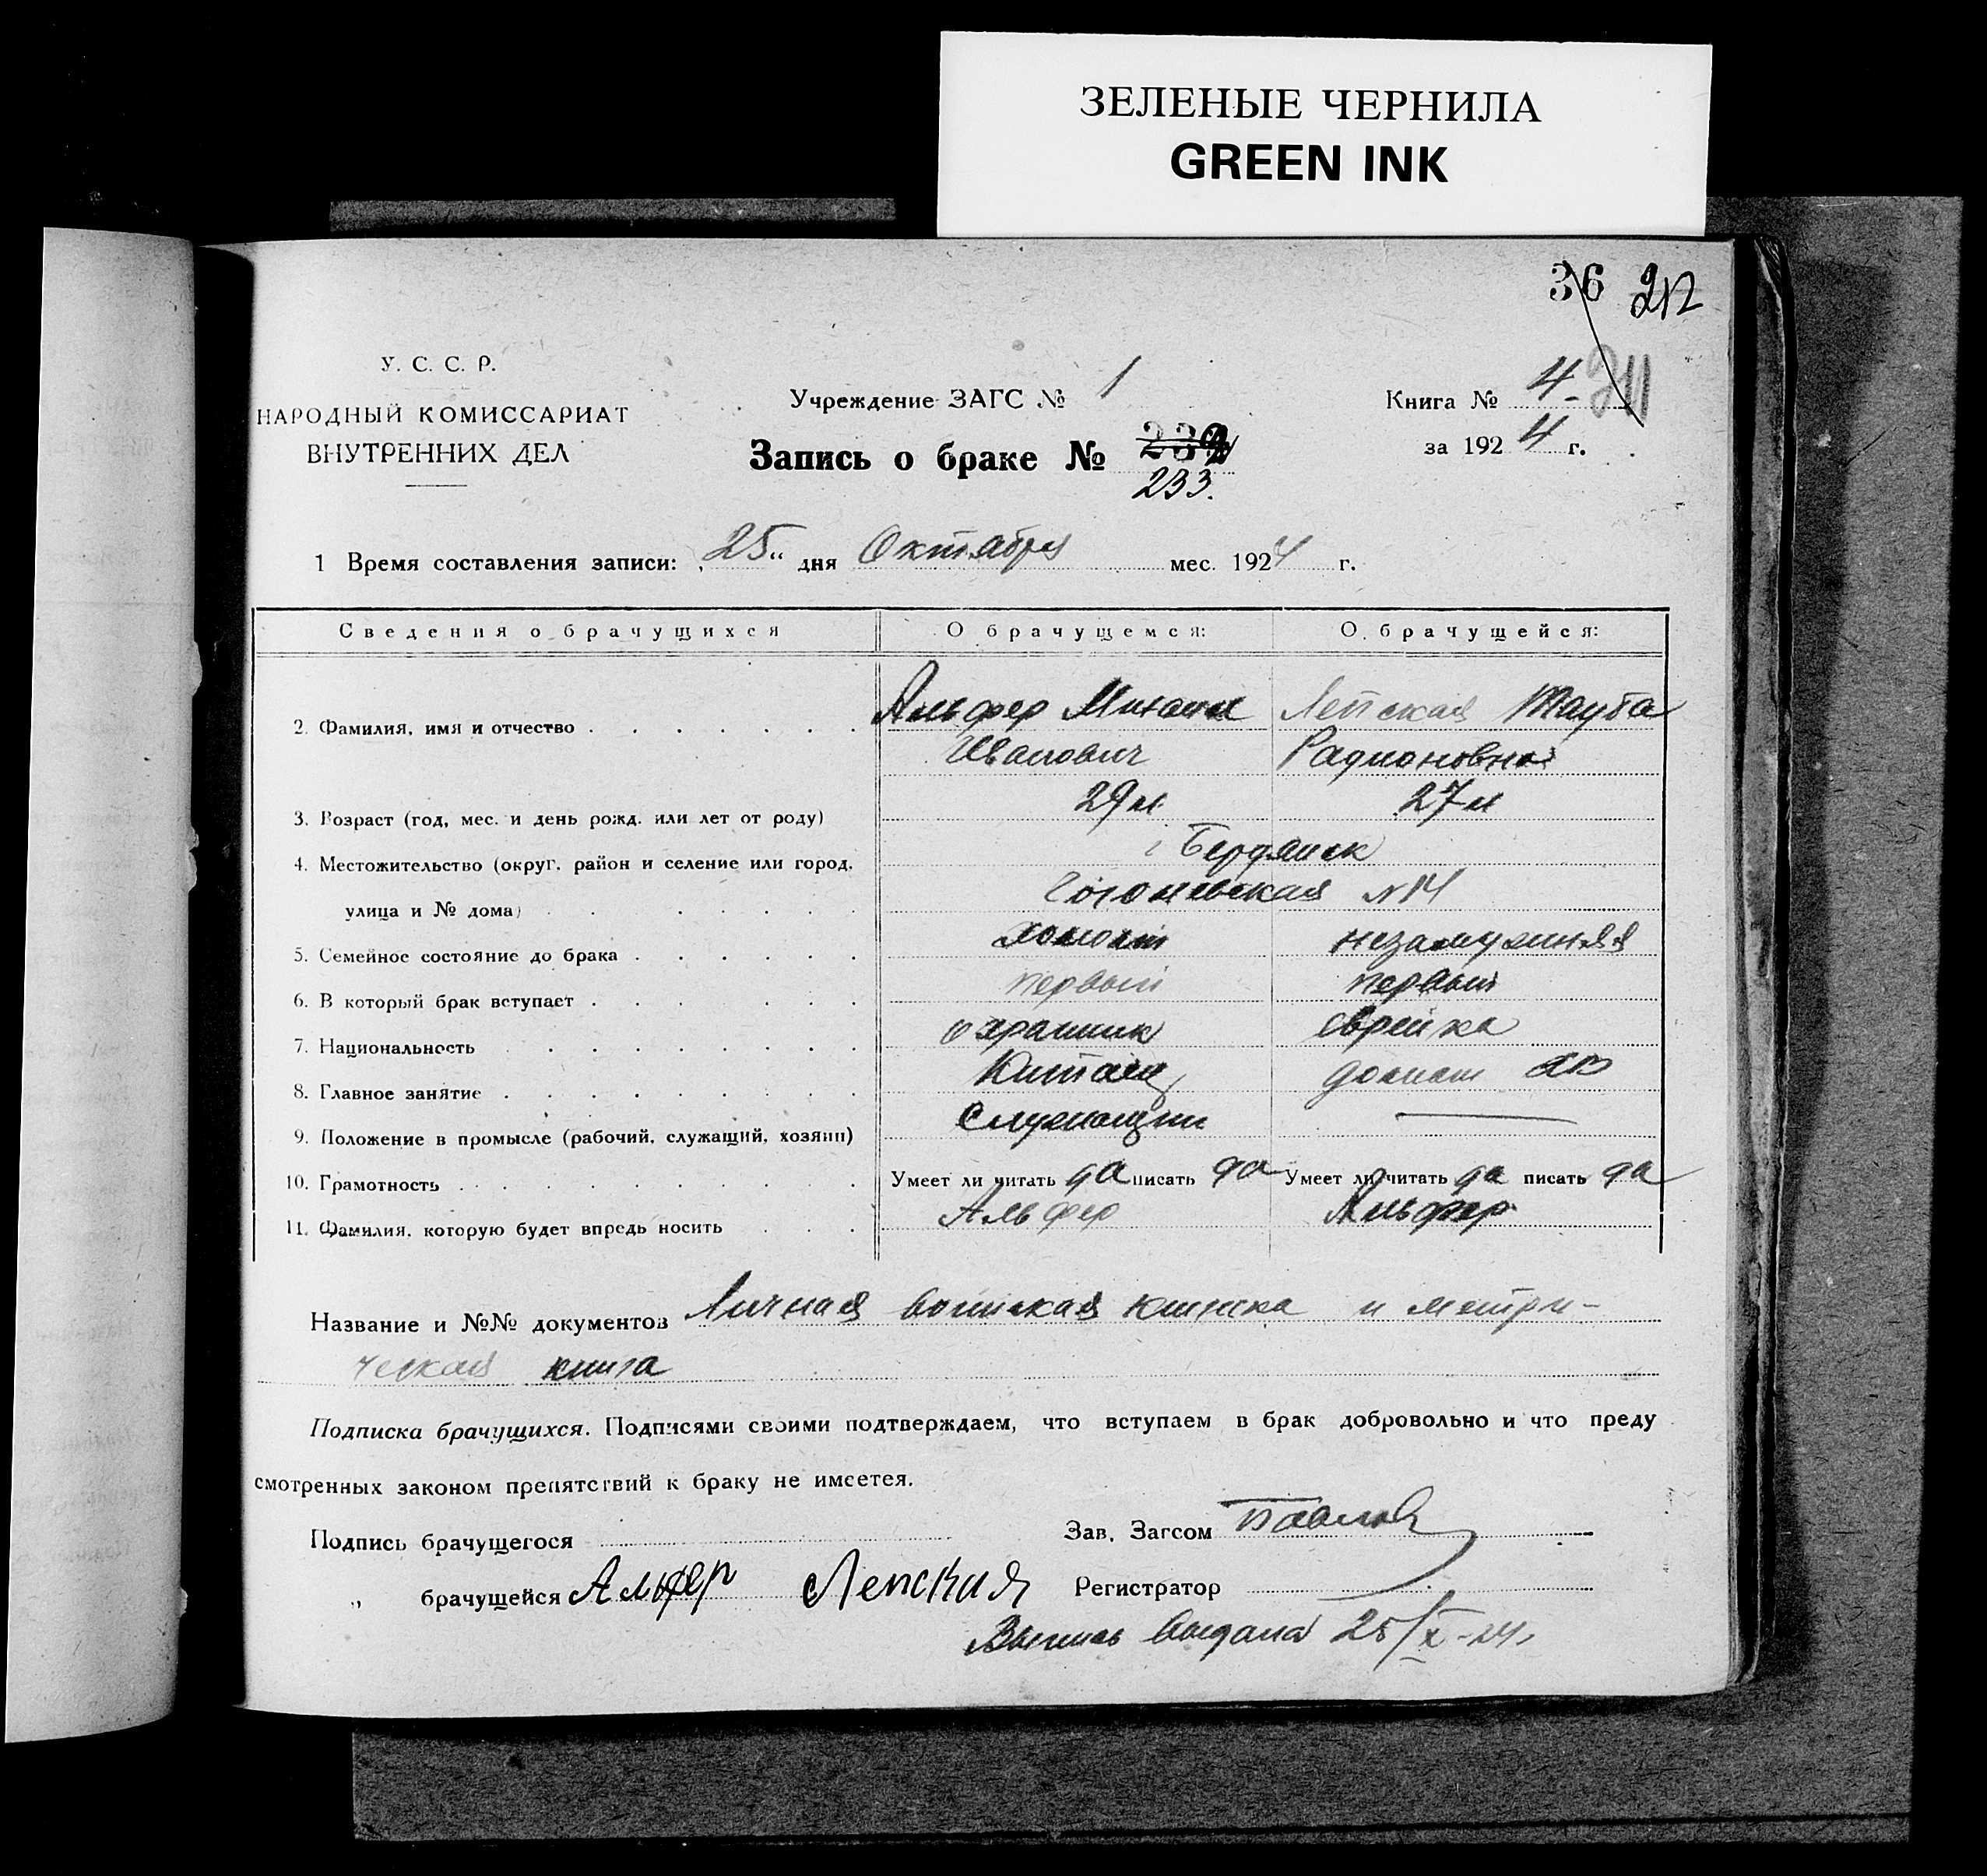 ЗЕЛЕНЫЕ ЧЕРНИЛА
GREEN INK
36 212
У. С. С. Р.
НАРОДНЫЙ КОМИССАРИАТ
ВНУТРЕННИХ ДЕЛ
Учреждение ЗАГС № 1
Книга № 4 211
за 1924 г.
Запись о браке № 232
233.
1 Время составления записи: „25“ дня Октября мес. 1924 г.
Сведения о брачущихся О брачущемся: О брачущейся:
2. Фамилия, имя и отчество Альфер Михаил Лепская Тауба
Иванович Радионовна
3. Возраст (год, мес. и день рожд. или лет от роду) 29 л 27 л
4. Местожительство (округ, район и селение или город, г Бердянск
улица и № дома) Гоголевская № 14
5. Семейное состояние до брака холост незамужняя
6. В который брак вступает первый первый
7. Национальность еврейка
8. Главное занятие домаш хоз
9. Положение в промысле (рабочий, служащий, хозяин) Служащий —
10. Грамотность Умеет ли читать да писать да Умеет ли читать да писать да
11. Фамилия, которую будет впредь носить Альфер Альфер
Название и №№ документов Личная воинская книжка и метри-
ческая книга
Подписка брачущихся. Подписями своими подтверждаем, что вступаем в брак добровольно и что преду
смотренных законом препятствий к браку не имеется.
Подпись брачущегося Зав. Загсом Павлов
„ брачущейся Альфер Лепская Регистратор
Выпись выдана 25/X-24.